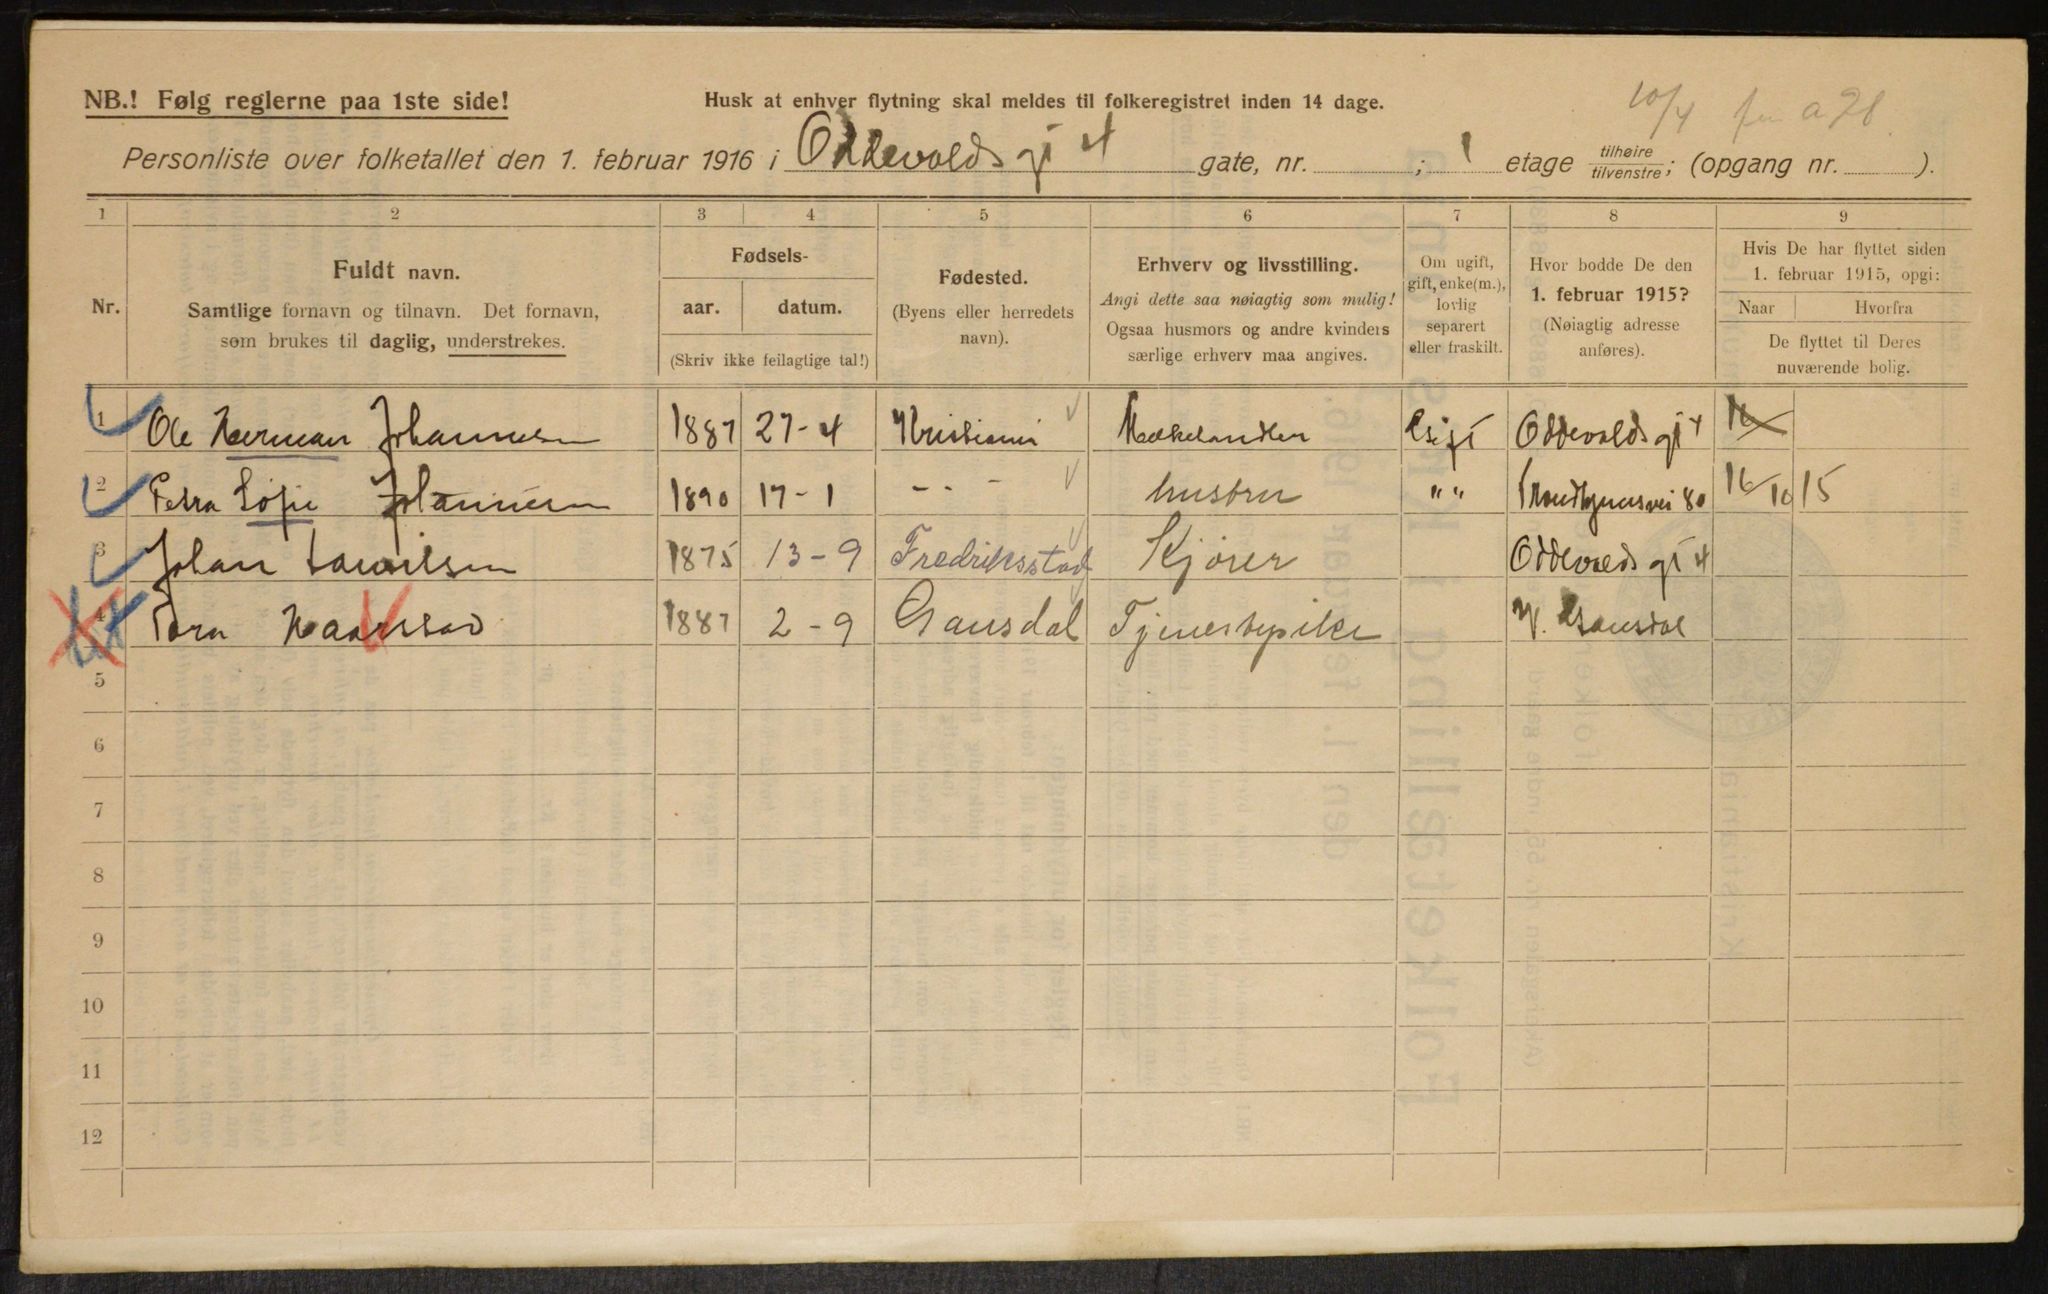 NB.! Følg reglerne paa 1ste side!
Husk at enhver flytning skal meldes til folkeregistret inden 14 dage.
10/4 a 98
Personliste over folketallet den 1. februar 1916 i Oddevolds gt 4 gate, nr. ; 1 etage tilhøire tilvenstre; (opgang nr. ).
1 2 3 4 5 6 7 8 9
Nr.
Fuldt navn.
Samtlige fornavn og tilnavn. Det fornavn,
som brukes til daglig, understrekes.
Fødsels-
aar. datum.
(Skriv ikke feilagtige tal!)
Fødested.
(Byens eller herredets
navn).
Erhverv og livsstilling.
Angi dette saa nøiagtig som mulig!
Ogsaa husmors og andre kvinders
særlige erhverv maa angives.
Om ugift,
gift, enke(m.),
lovlig
separert
eller fraskilt.
Hvor bodde De den
1. februar 1915?
(Nøiagtig adresse
anføres).
Hvis De har flyttet siden
1. februar 1915, opgi:
Naar Hvorfra
De flyttet til Deres
nuværende bolig.
1 Ole Herman Johannesen 1887 27-4 Kristiania Melkehandler Gift Oddevolds gt 4 16
2 Petra Sofie Johannesen 1890 17-1 - - - hustru " " Trondhjemsvei 80 16/10 15
3 Johan Lauritsen 1875 13-9 Fredriksstad Kjører Oddevolds gt 4
4 Tora Haarstad 1887 2-9 Gausdal Tjenestepike V. Gausdal
5
6
7
8
9
10
11
12